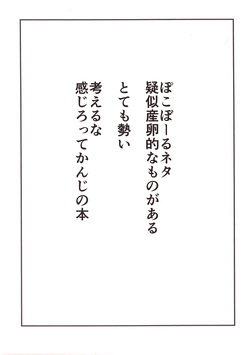 ぽこぽーるネタ
疑似産卵的なものがある
とても勢い
考えるな
感じろってかんじの本